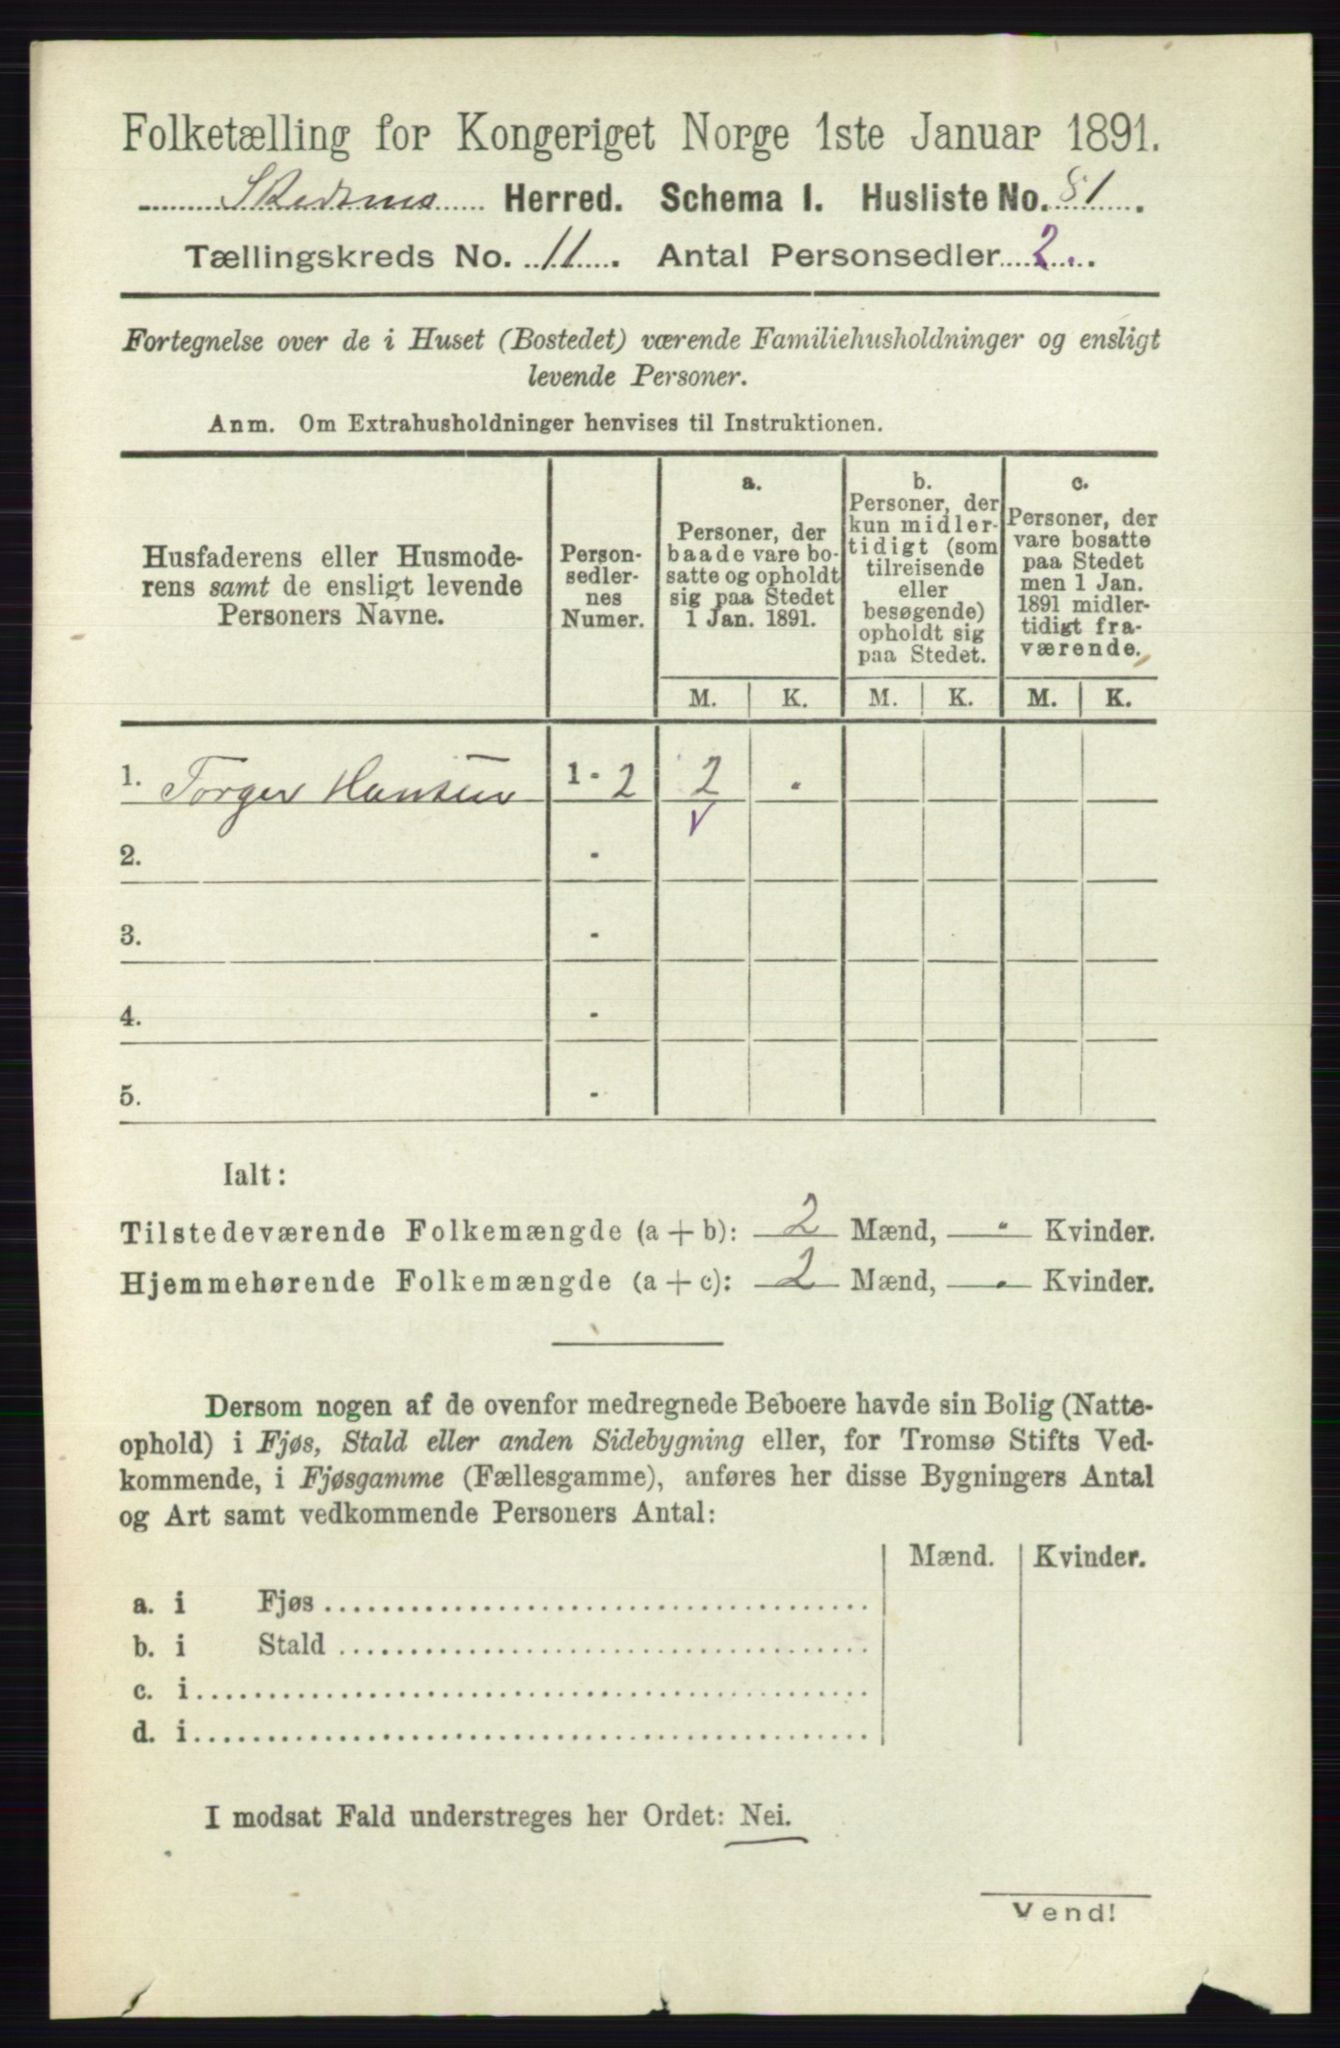 Folketælling for Kongeriget Norge 1ste Januar 1891.
Skedsmo Herred. Schema I. Husliste No. 81.
Tællingskreds No. 11. Antal Personsedler 2.
Fortegnelse over de i Huset (Bostedet) værende Familiehusholdninger og ensligt
levende Personer.
Anm. Om Extrahusholdninger henvises til Instruktionen.
Husfaderens eller Husmode-
rens samt de ensligt levende
Personers Navne.
Person-
sedler-
nes
Numer.
a.
Personer, der
baade vare bo-
satte og opholdt
sig paa Stedet
1 Jan. 1891.
b.
Personer, der
kun midler-
tidigt (som
tilreisende
eller
besøgende)
opholdt sig
paa Stedet.
c.
Personer, der
vare bosatte
paa Stedet
men 1 Jan.
1891 midler-
tidigt fra-
værende.
M. K. M. K. M. K.
1. Torger Hansen 1 - 2 2 .
V
2. -
3. -
4. -
5. -
Ialt:
Tilstedeværende Folkemængde (a + b): 2 Mænd, - Kvinder.
Hjemmehørende Folkemængde (a + c): 2 Mænd, - Kvinder.
Dersom nogen af de ovenfor medregnede Beboere havde sin Bolig (Natte-
ophold) i Fjøs, Stald eller anden Sidebygning eller, for Tromsø Stifts Ved-
kommende, i Fjøsgamme (Fællesgamme), anføres her disse Bygningers Antal
og Art samt vedkommende Personers Antal:
Mænd. Kvinder.
a. i Fjøs
b. i Stald
c. i
d. i
I modsat Fald understreges her Ordet: Nei.
Vend!